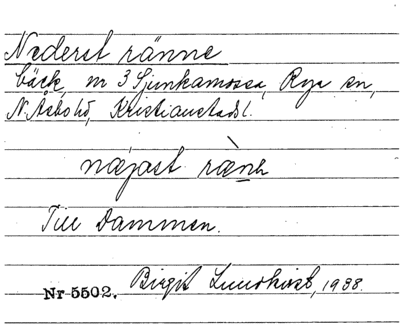 Nederst ränne
bäck, m 3 Sjunkamossa, Rya sn,
N. Åsbo hd, Kristianstads l.
næjast ræ̀nə
Till Dammen.
Nr 5502. Birgit Lundkvist, 1938.